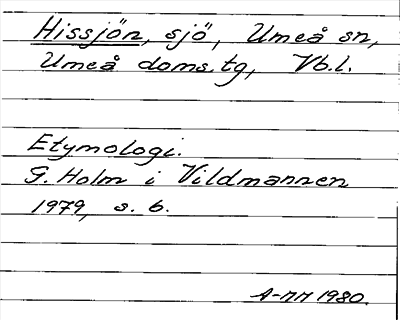 Hissjön, sjö, Umeå sn,
Umeå doms.tg, Vb.l.
Etymologi.
G. Holm i Vildmannen
1979, s. 6.
A-MM 1980.